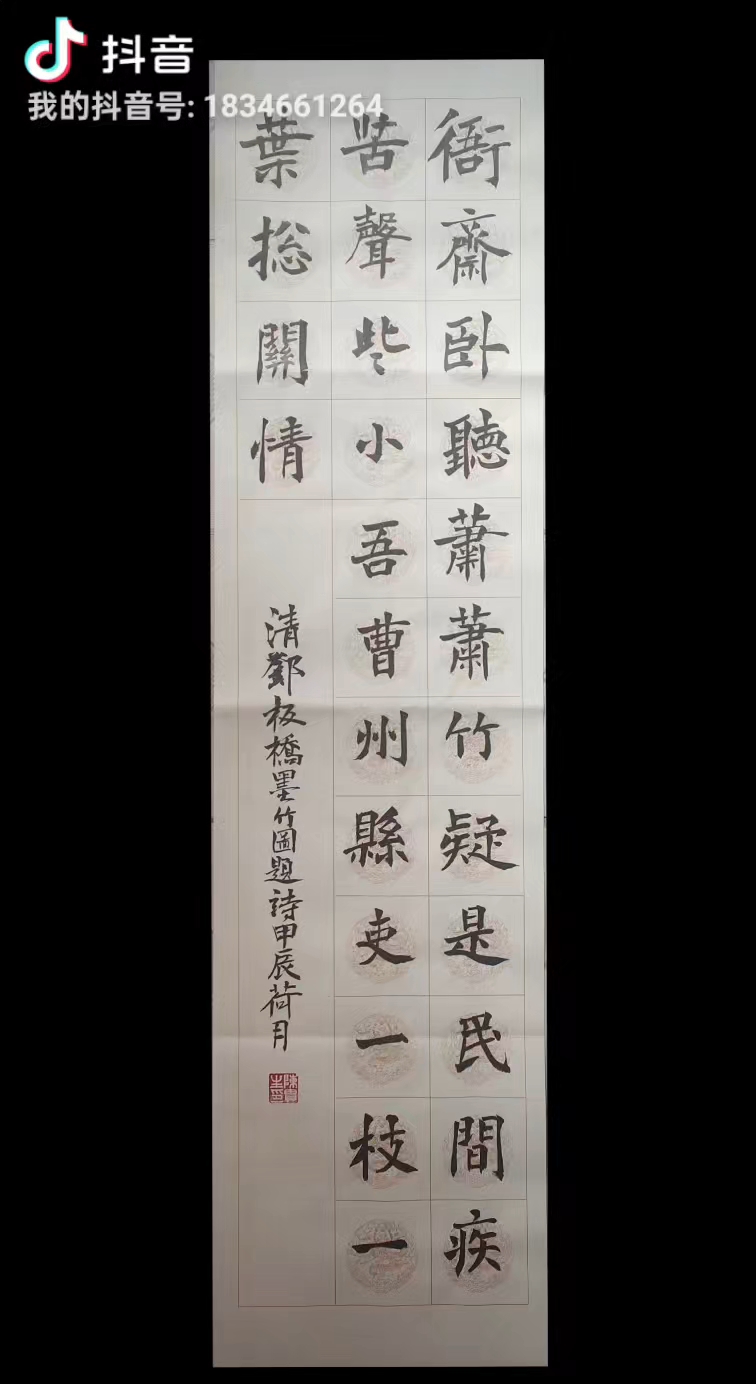 抖音
我的抖音号: 1834661264
衙齋卧聽蕭蕭竹疑是民間疾
苦聲些小吾曹州縣吏一枝一
葉総關情
清鄭板橋墨竹圖題詩甲辰荷月